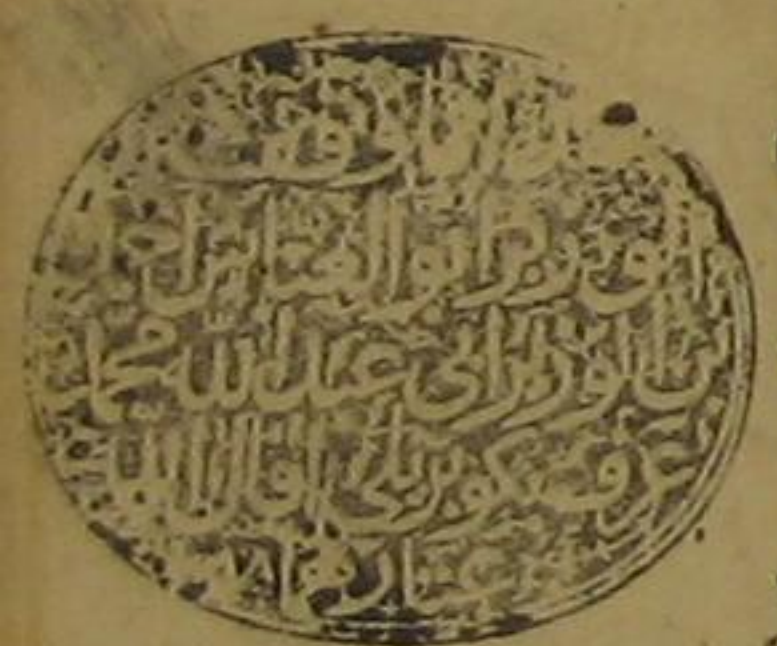 هذا ما وقف
الوزير ابو العباس احمد
بن الوزير ابي عبد الله محمد
عرف بكوبريلي اقال الله
عثارهما